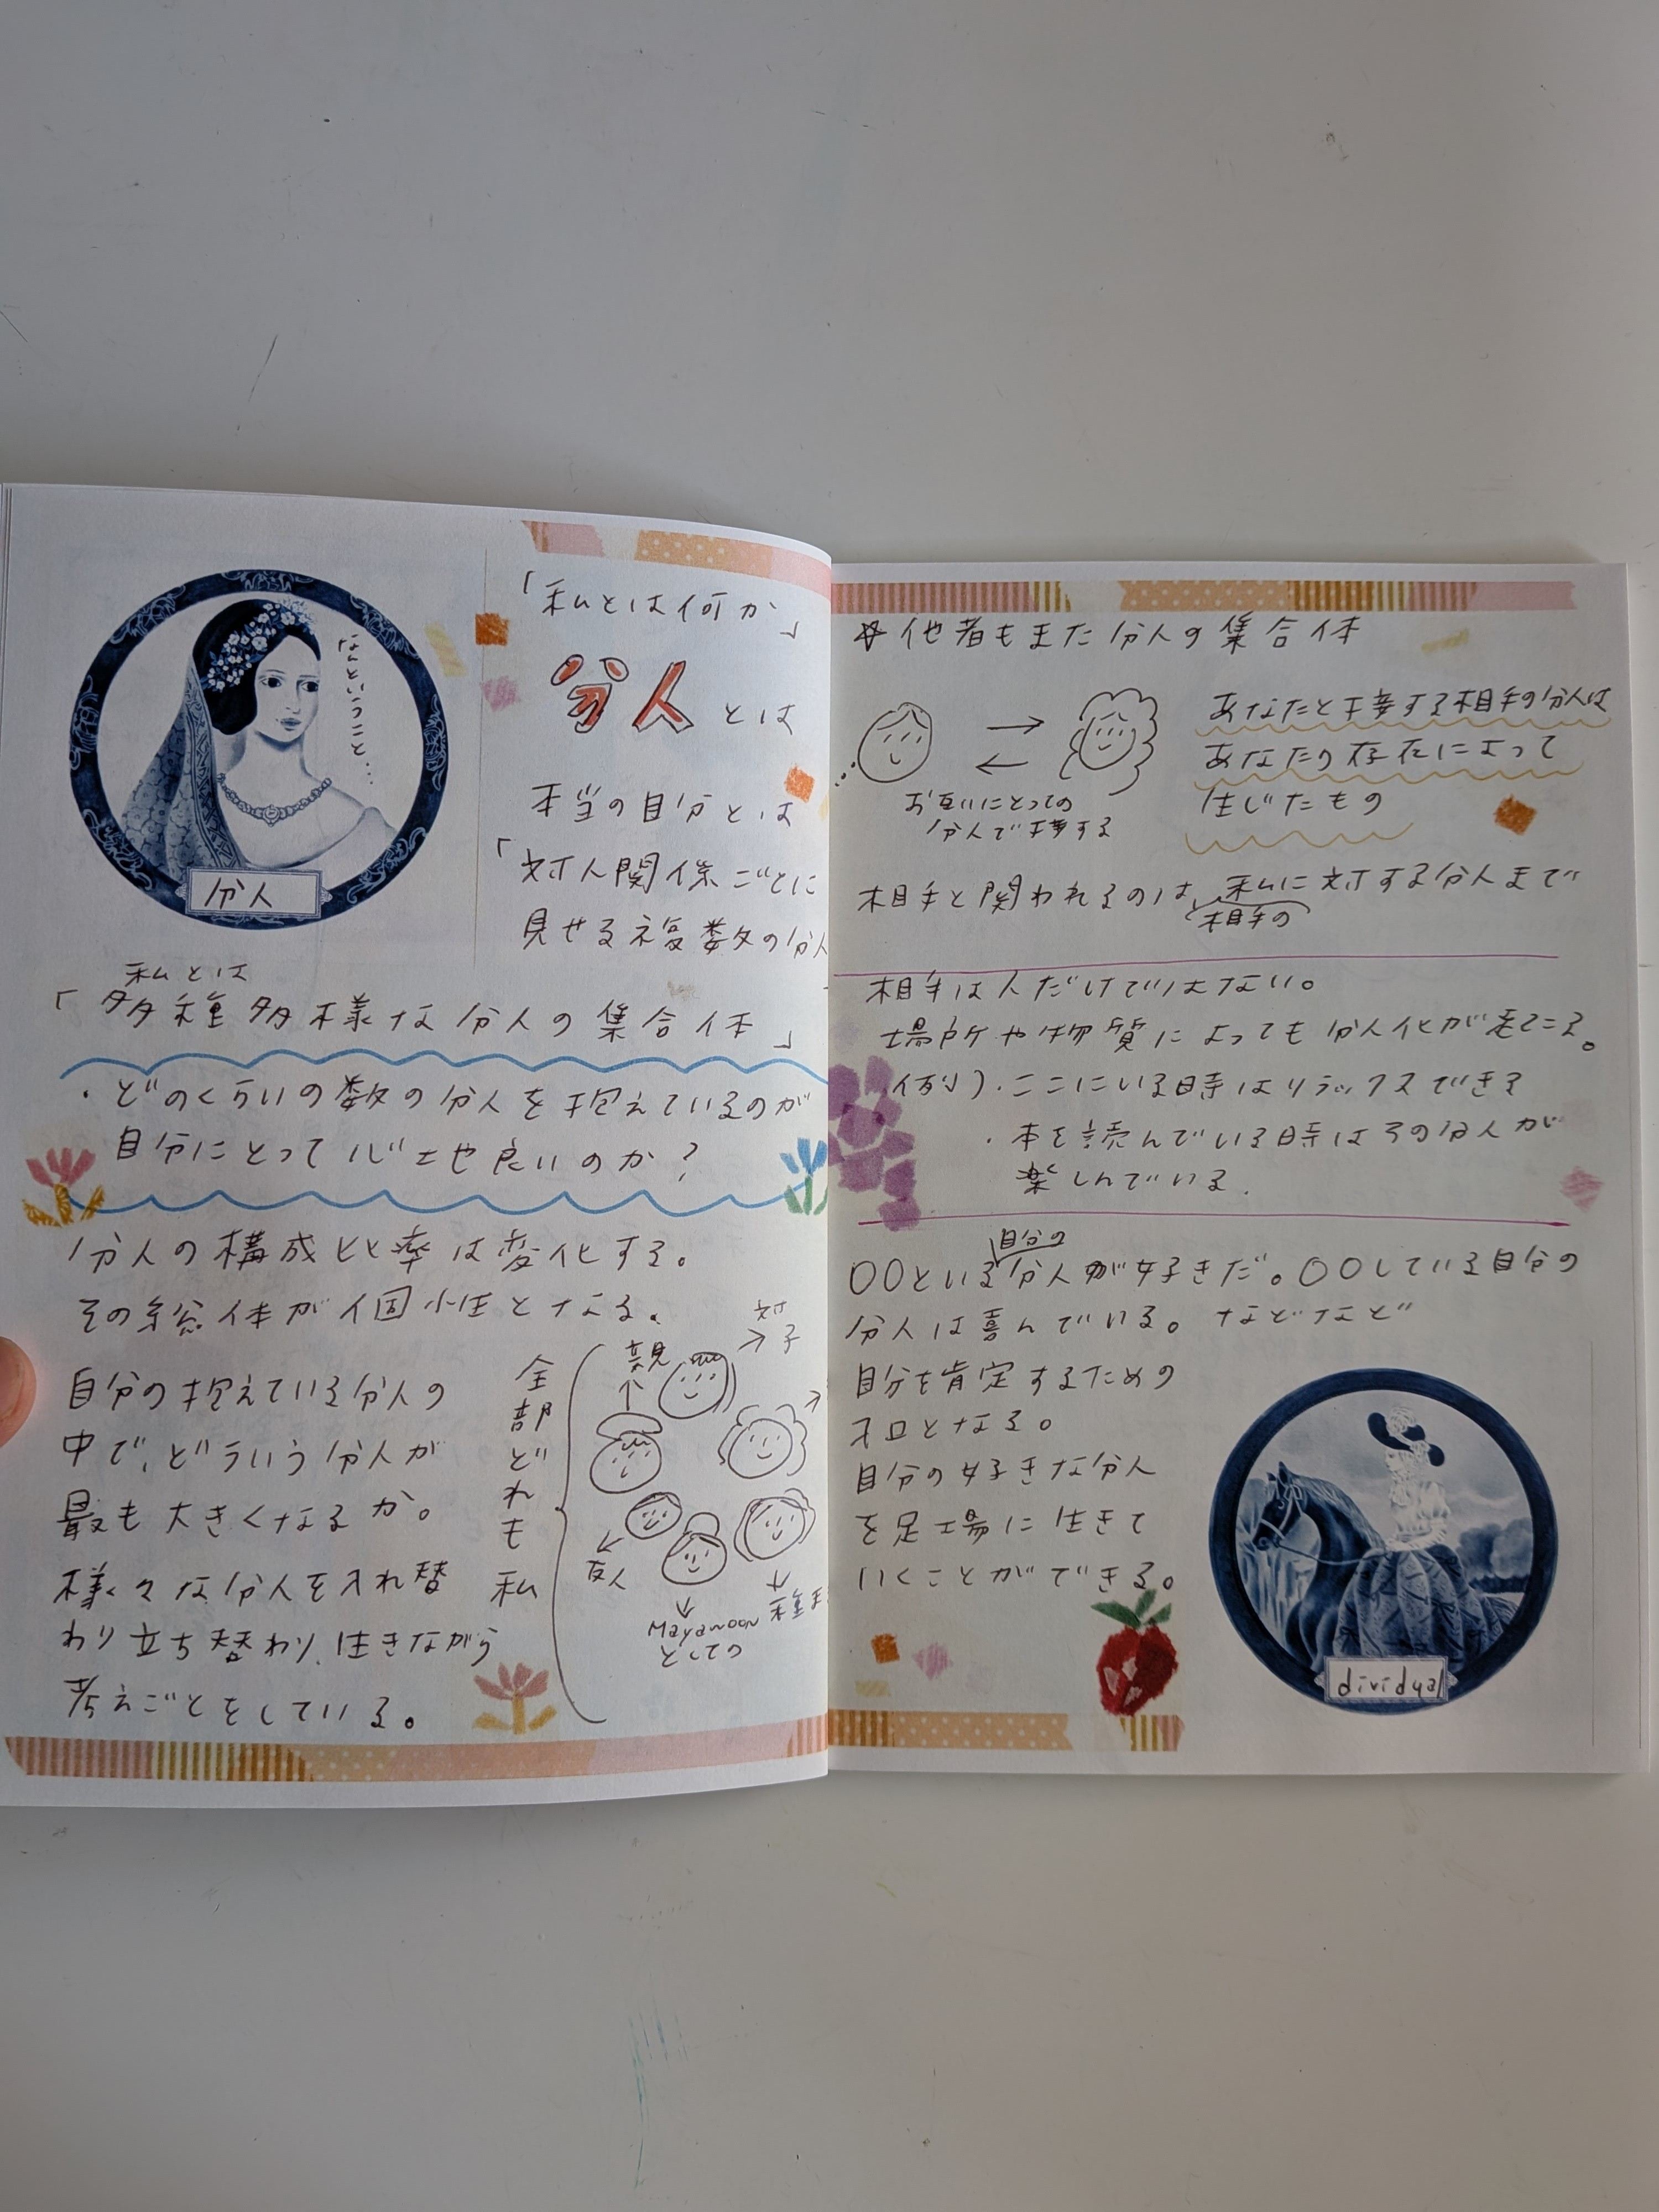 なんということ...
分人
「私とは何か」
分人とは
本当の自分とは
「対人関係ごとに
見せる複数の分人
私とは
「多種多様な分人の集合体」
・どのくらいの数の分人を抱えているのが
自分にとって心地良いのか?
分人の構成比率は変化する。
その総体が個性となる。
自分の抱えている分人の
中で、どういう分人が
最も大きくなるか。
様々な分人を入れ替
わり立ち替わり、生きながら
考えごとをしている。
全部どれも私
親
対
→子
友人
Mayamoon
としての
☆他者もまた分人の集合体
お互いにとっての
分人で接する
あなたと接する相手の分人は
あなたの存在によって
生じたもの
相手と関われるのは、私に対する分人まで
相手の
相手は人だけではない。
場所や物質によっても分人化が起こる。
例)・ここにいる時はリラックスできる
・本を読んでいる時はその分人が
楽しんでいる.
自分の
〇〇といる分人が好きだ。〇〇している自分の
分人は喜んでいる。などなど
自分を肯定するための
入口となる。
自分の好きな分人
を足場に生きて
いくことができる。
dividual